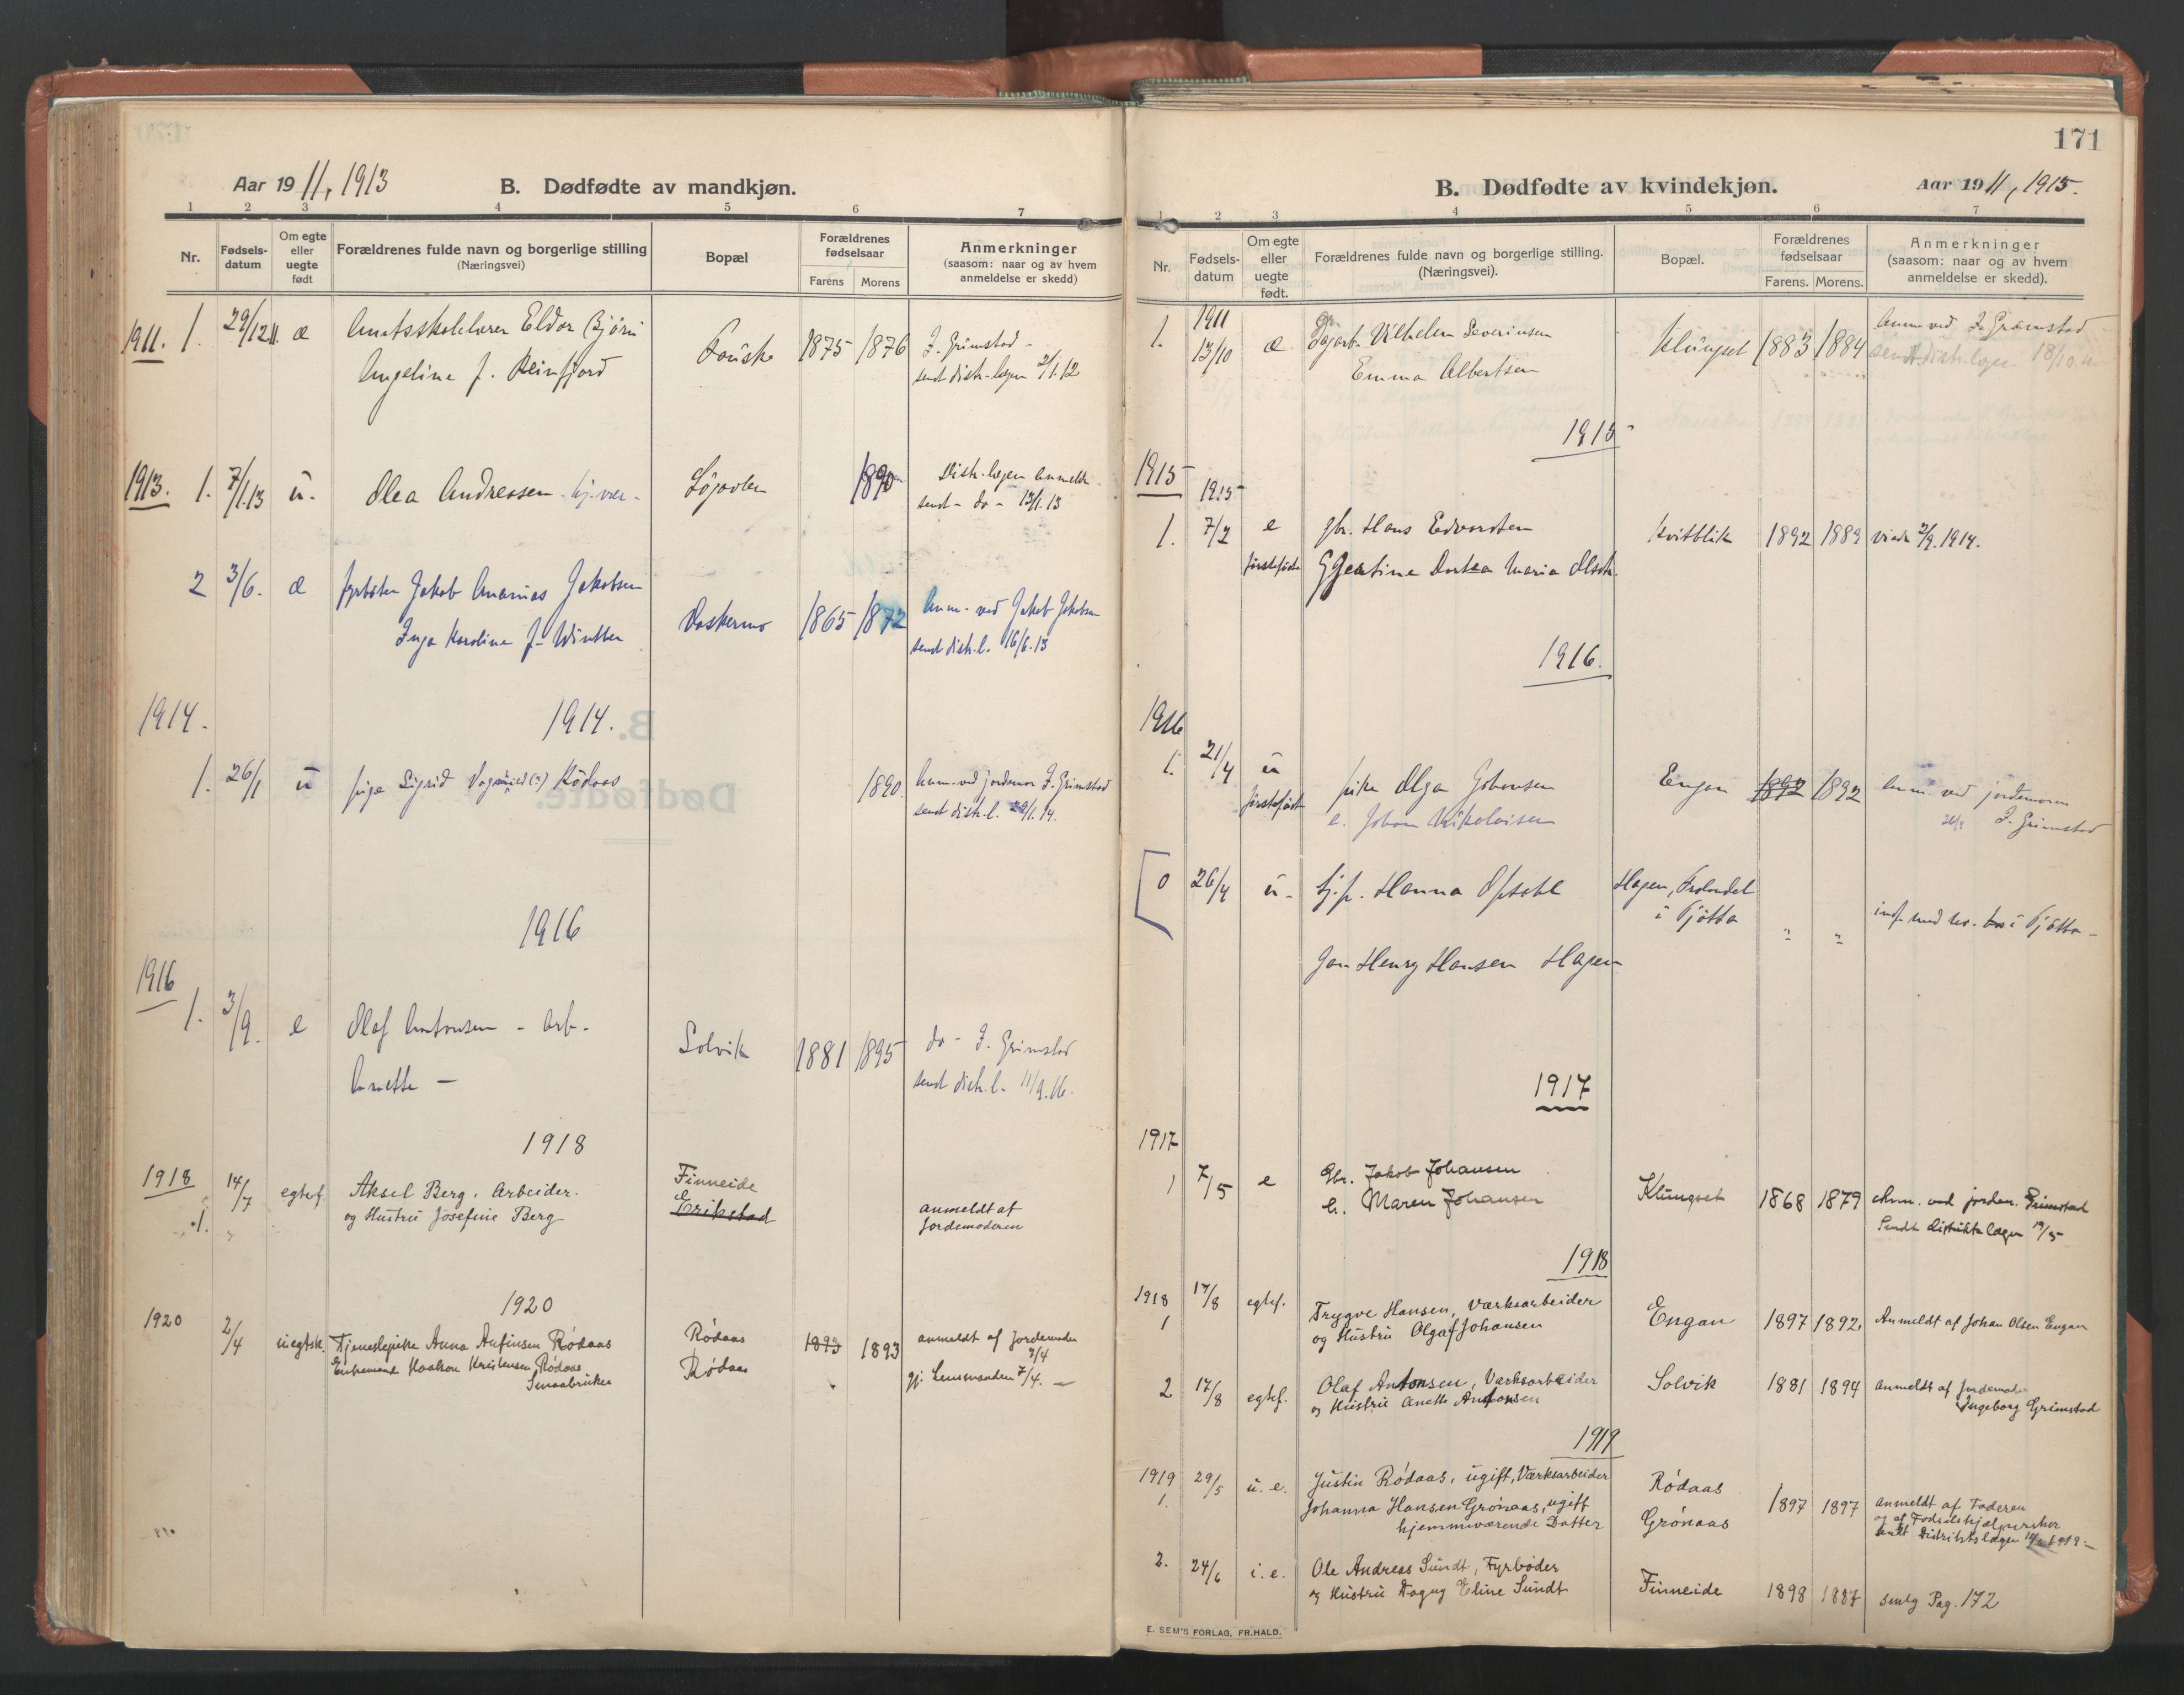 Aar 1911, 1913
B. Dødfødte av mandkjøn.
1 2 3 4 5 6 7
Nr.
Fødsels-
datum
Om egte
eller
uegte
født
Forældrenes fulde navn og borgerlige stilling
(Næringsvei)
Bopæl
Forældrenes
fødselsaar
Farens Morens
Anmerkninger
(saasom: naar og av hvem
anmeldelse er skedd)
1911. 1. 29/12.11. æ Amtsskolelærer Eldor Bjørn
Angeline f. Reinfjord
Fauske 1875 1876 I. Grimstad -
sendt distr.-lægen 2/1.12
1913. 1. 7/1.13 u. Olea Andreasen
1890 Distr.-lægen anmeldt
sendt - do - 13/1.13
2 3/6. æ fyrbøter Jakob Ananias Jakobsen
Inga Karoline f. Winther
Vaskermo 1865 1872 Anm. ved Jakob Jakobsen
sendt distr.l. 16/6.13
1914.
1914.
1. 26/1 u pige Sigrid Rödaas
1890. Anm. ved jordemor I. Grimstad
sendt distr.l. 29/1.14.
1916
1916
1. 3/9. e Olaf Antonsen - arb.
Anette -
Solvik 1881 1895 do - I. Grimstad
sendt distr.l. 11/9.16.
1918
1918 14/7 egtef. Aksel Berg. Arbeider.
.1. og Hustru Josefine Berg
Finneide
Erikstad
anmeldt af
Jordemoderen
1920
1920 2/4 uegtsk. Tjenestepike Anna Anfinsen Rödaas
Enkemand Haakon Kristensen Rödaas
Smaabruker
Rödaas
Rödaas
1893 1893 anmeldt af Jordemoder
3/4
gj. Lensmanden 7/4. -
171
B. Dødfødte av kvindekjøn.
Aar 1911, 1915.
1 2 3 4 5 6 7
Nr.
Fødsels-
datum
Om egte
eller
uegte
født.
Forældrenes fulde navn og borgerlige stilling.
(Næringsvei).
Bopæl.
Forældrenes
fødselsaar
Farens. Morens.
Anmerkninger
(saasom: naar og av hvem
anmeldelse er skedd).
1911
1. 13/10 æ Dagarb. Vilhelm Severinsen
Emma Albertsen
Klungset 1883 1884 Anm. ved I. Grimstad
sendt distr.lægen 18/10.11
1915
1915
1915
1. 7/2 e gbr. Hans Edvardsen
førstefødte Gjertine Dortea Maria Olsdtr.
Kvitblik 1892 1889 viede 2/9.1914.
1916.
1916
1. 21/4 u pike Olga Johansen
førstefødte e. Johan Nikolaisen
Engan 1892 1892 Anm. ved jordemoren
I. Grimstad
0 26/4 u. tj.p. Hanna Opsahl
Hagen,
i Tjøtta " "
indf. med nr. hos i Tjøtta -
Jon Henry Hansen Hagen
1917
1917
1 7/5 e Gbr. Jakob Johansen
h. Maren Johansen
Klungset 1868 1879 Anm. ved jordem. Grimstad
Sendt distriktslægen 19/5
1918
1918 17/8 egtef. Trygve Hansen, Værksarbeider
1 og Hustru Olga f Johansen
Engan 1897 1892 Anmeldt af Johan Olsen Engan
2 17/8 egtef. Olaf Antonsen, Værksarbeider
og Hustru Anette Antonsen
Solvik 1881 1894 anmeldt af Jordemoder
Ingeborg Grimstad
1919
1919 29/5 u. e. Justin Rödaas, ugift, Værksarbeider
1. Johanna Hansen Grönaas, ugift
hjemmeværende Datter
Rödaas
Grönaas
1897 1897 anmeldt af Faderen
og af Fødselshjælpersker
sendt Distriktslægen
2. 24/6 i. e. Ole Andreas Sundt, Fyrbøder
og Hustru Dagny Eline Sundt
Finneide 1898 1887 smlg Pag. 172
E. SEM'S FORLAG, FR.HALD.